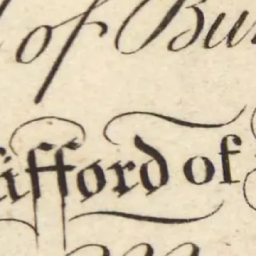 of Bu
ifford of